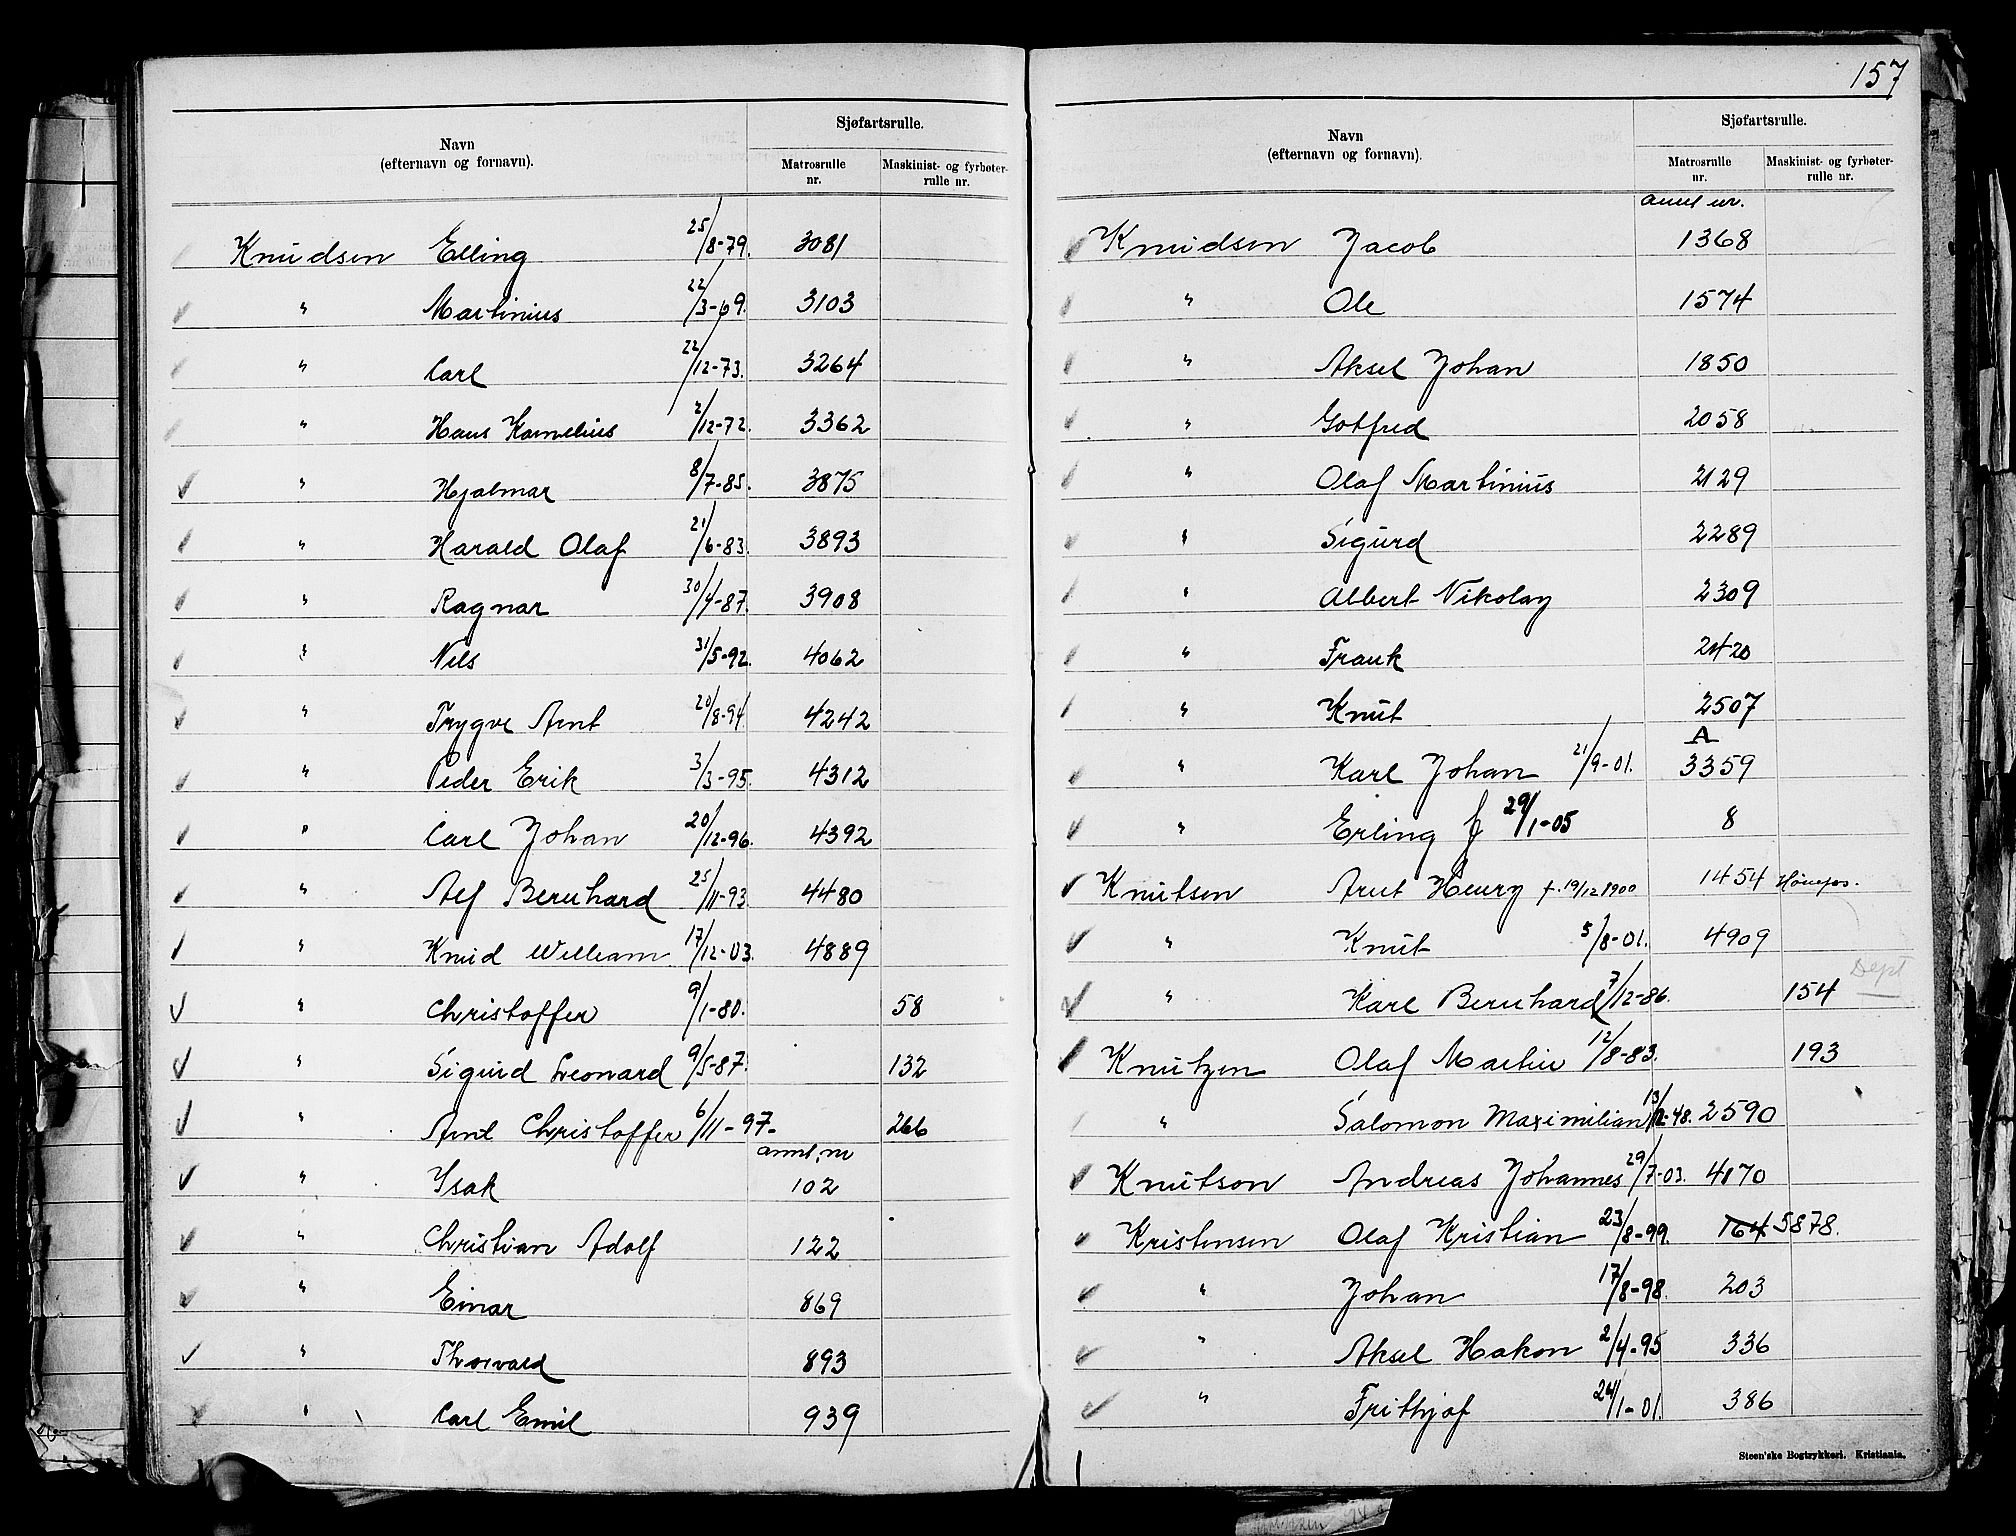 Navn
(efternavn og fornavn).
Sjøfartsrulle.
Matrosrulle nr.
Maskinist- og fyrbøter- rulle nr.
Knudsen Elling 25/8-79. 3081
" Martinius 22/3-69. 3103
" Carl 22/12-73. 3264
" Hans Kornelius 2/12-72. 3362
" Hjalmar 8/7-85. 3875
" Harald Olaf 21/6-83. 3893
" Ragnar 30/4-87. 3908
" Nils 31/5-92. 4062
" Trygve Arnt 20/8-94. 4242
" Peder Erik 3/3-95. 4312
" Carl Johan 20/12-96. 4392
" Alf Bernhard 25/11-93. 4480
" Knud William 17/12-03. 4889
" Christoffer 9/1-80. 58
" Sigurd Leonard 9/5-87. 132
" Arnt Christoffer 6/11-97- 266
annt. nr
" Isak 102
" Christian Adolf 122
" Einar 869
" Thorvard 893
" Carl Emil 939
157
Navn
(efternavn og fornavn).
Sjøfartsrulle.
Matrosrulle nr.
Maskinist- og fyrbøter- rulle nr.
annt nr.
Knudsen Jacob 1368
" Ole 1574
" Aksel Johan 1850
" Gotfred 2058
" Olaf Martinius 2129
" Sigurd 2289
" Albert Nikolay 2309
" Frank 2420
" Knut 2507
A
" Karl Johan 21/9-01. 3359
" Erling J 29/1-05 8
Knutsen Arnt Henry f. 19/12 1900 1454 Hønefos.
" Knut 5/8-01. 4909
Dept
" Karl Bernhard 7/12-86. 154
Knutzen Olaf Martin 12/8-83. 193
" Salomon Maximilian 13/12-48. 2590
Knutson Andreas Johannes 29/7-03. 4170
Kristensen Olaf Kristian 23/8-99. 164 5878.
" Johan 17/8-98. 203
" Aksel Hakon 2/4-95 336
" Frithjof 24/1-01. 386
Steen'ske Bogtrykkeri. Kristiania.